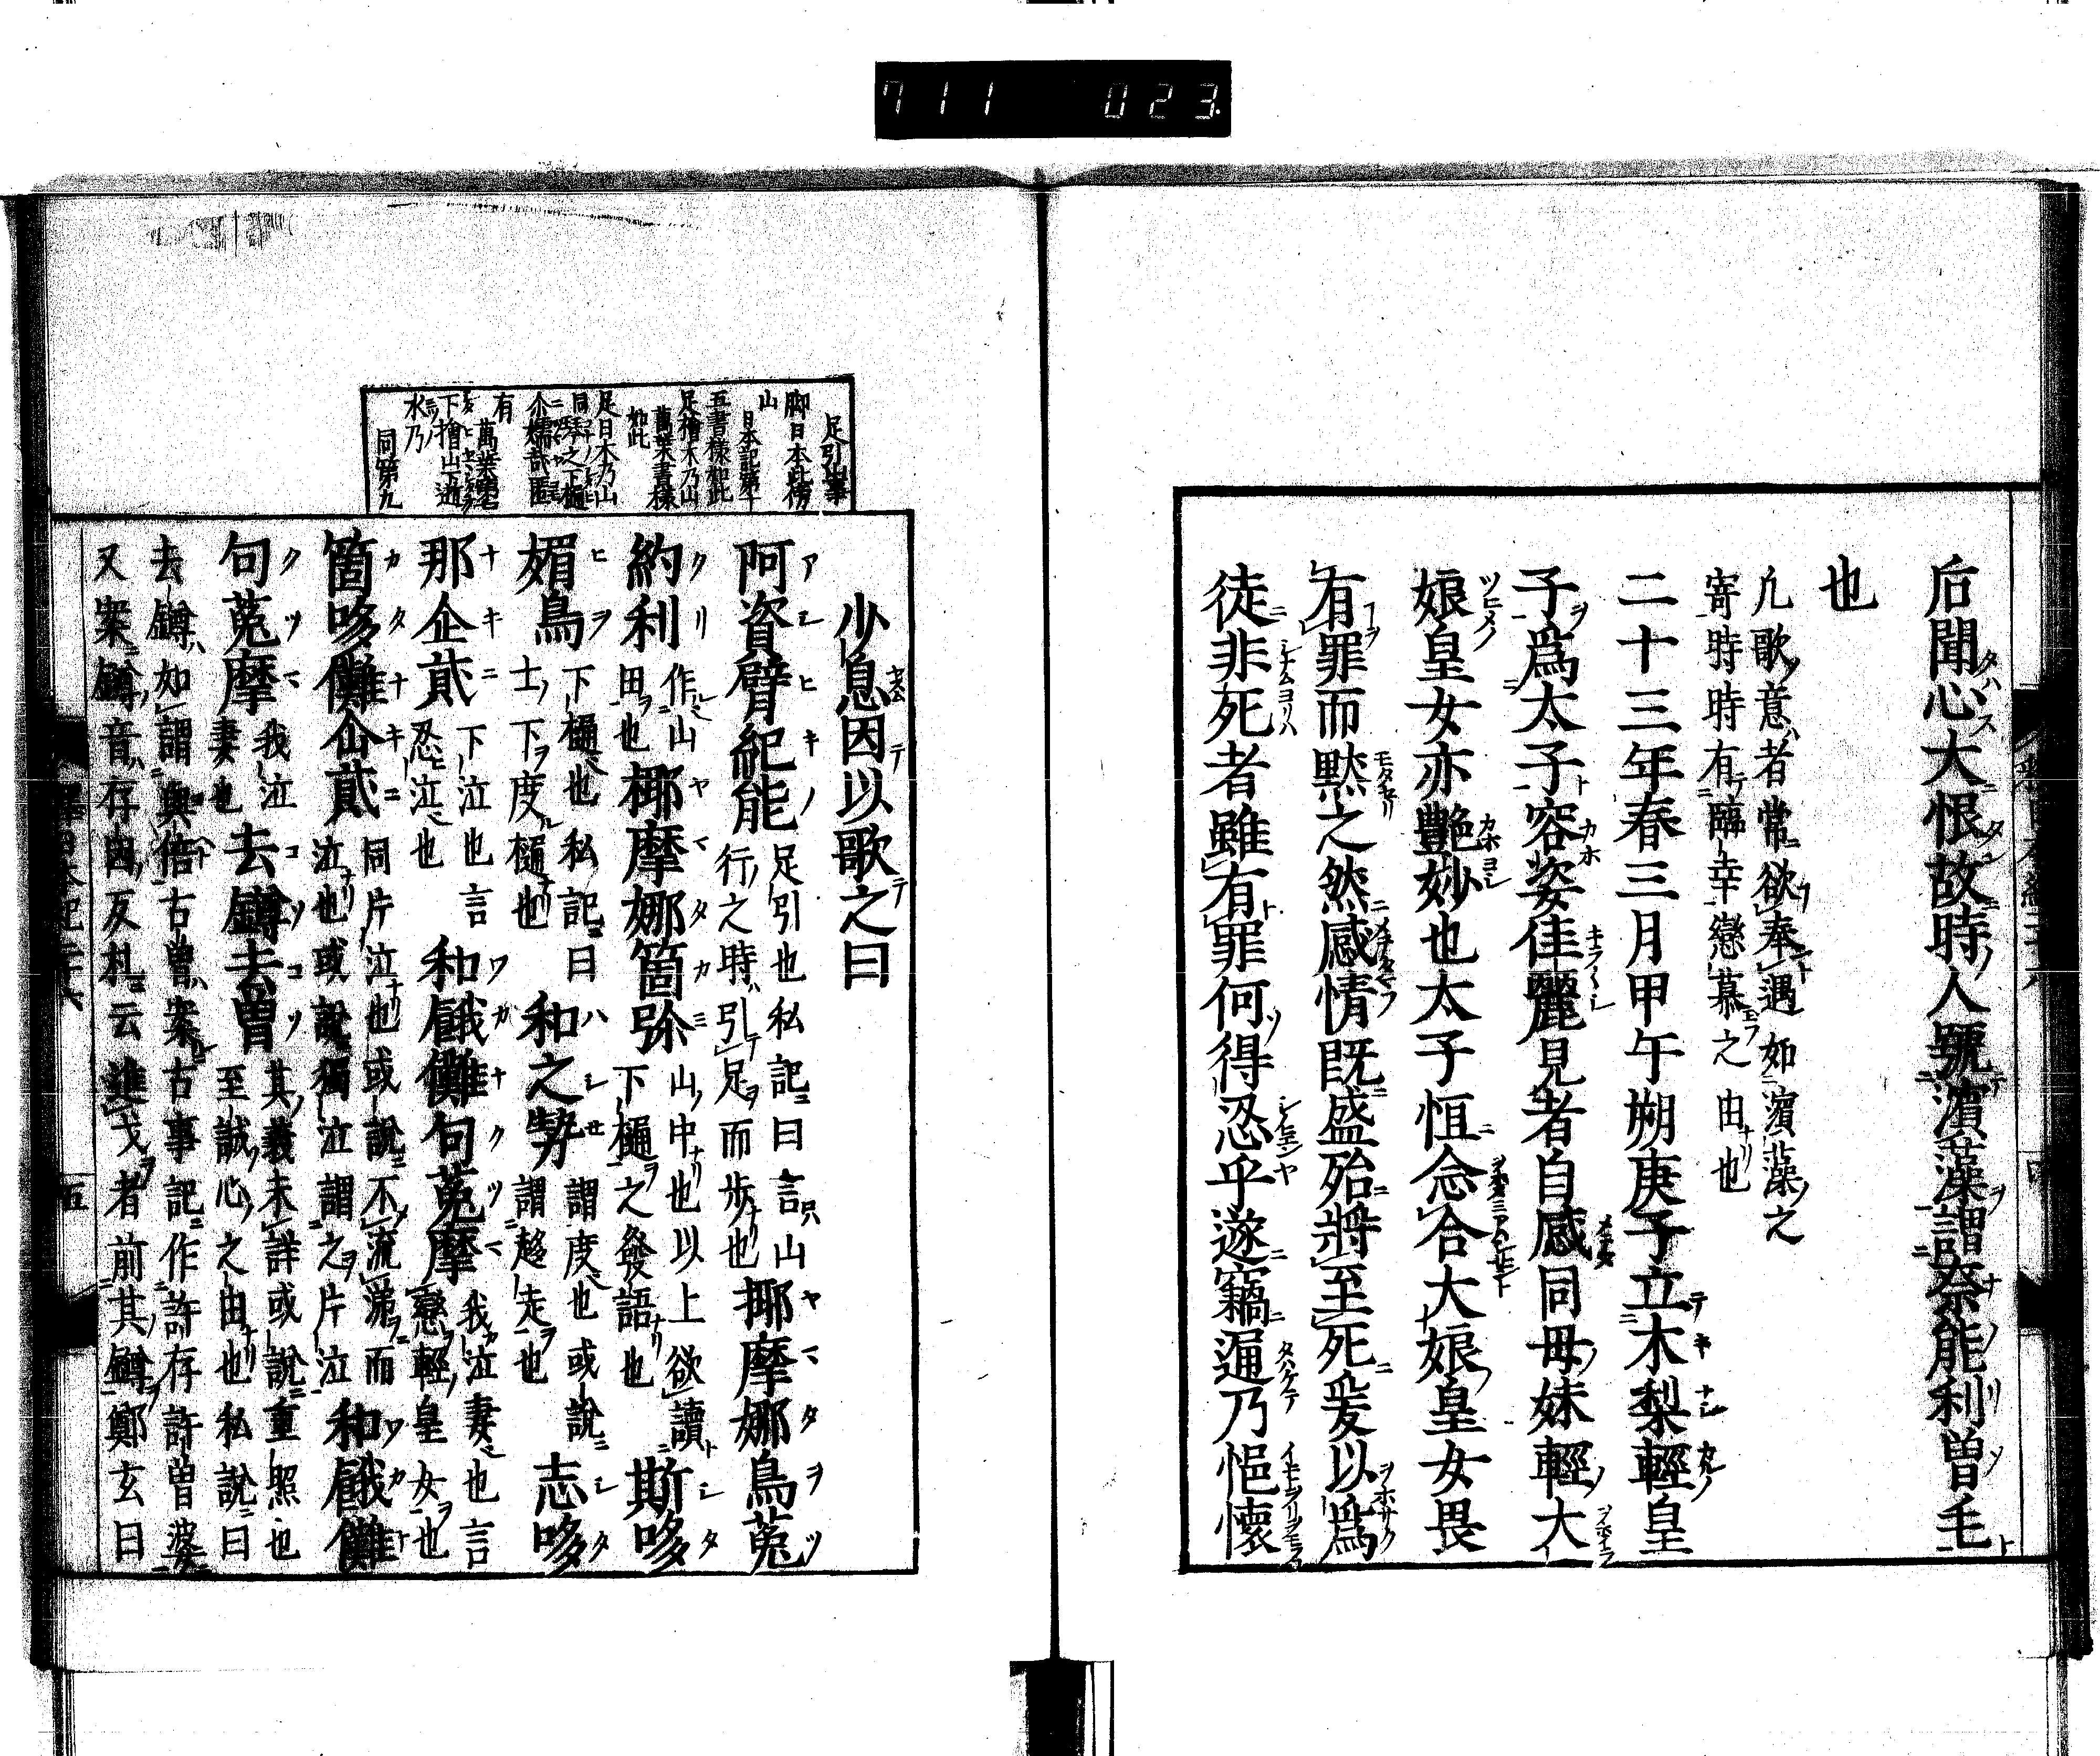 711 023
后聞心大恨故時人號濱藻謂奈能利曽毛
也
凢歌意者常欲奉遇如濱藻之
寄時時有臨幸戀慕之由也
二十三年春三月甲午朔庚子立木梨輕皇
子爲太子容姿佳麗見者自感同母妹輕大
娘皇女亦艶妙也太子恒念合大娘皇女畏
有罪而黙之然感情既盛殆將至死爰以爲
徒非死者雖有罪何得忍乎遂竊通乃悒懷
足引事
脚日本此傍
山
日本記第十
五書樣如此
足檜木乃山
萬葉書樣
如此
足日木乃山
有
水乃
同第九
少息因以歌之曰
阿資臂紀能足引也私記曰言山
行之時引足而歩也椰摩娜烏菟
約利作山
田也椰摩娜箇弥山中也以上欲讀
下樋之發語也斯哆
媚烏下樋也私記曰
士下度樋也和之勢謂度也或説
謂趍走也志哆
那企貳下泣也言
忍泣也和餓儺句菟摩我泣妻也言
戀輕皇女也
箇哆儺企貳同片泣也或説不流涕而
泣也或說獨泣謂之片泣和餓儺
句菟摩我泣
妻也去鐏去曽其義未詳或說重照也
至誠心之由也私說曰
去鐏如謂與倍古曽案古事記作許存許曽婆
又案鐏音存困反札云進戈者前其鐏鄭玄曰
五